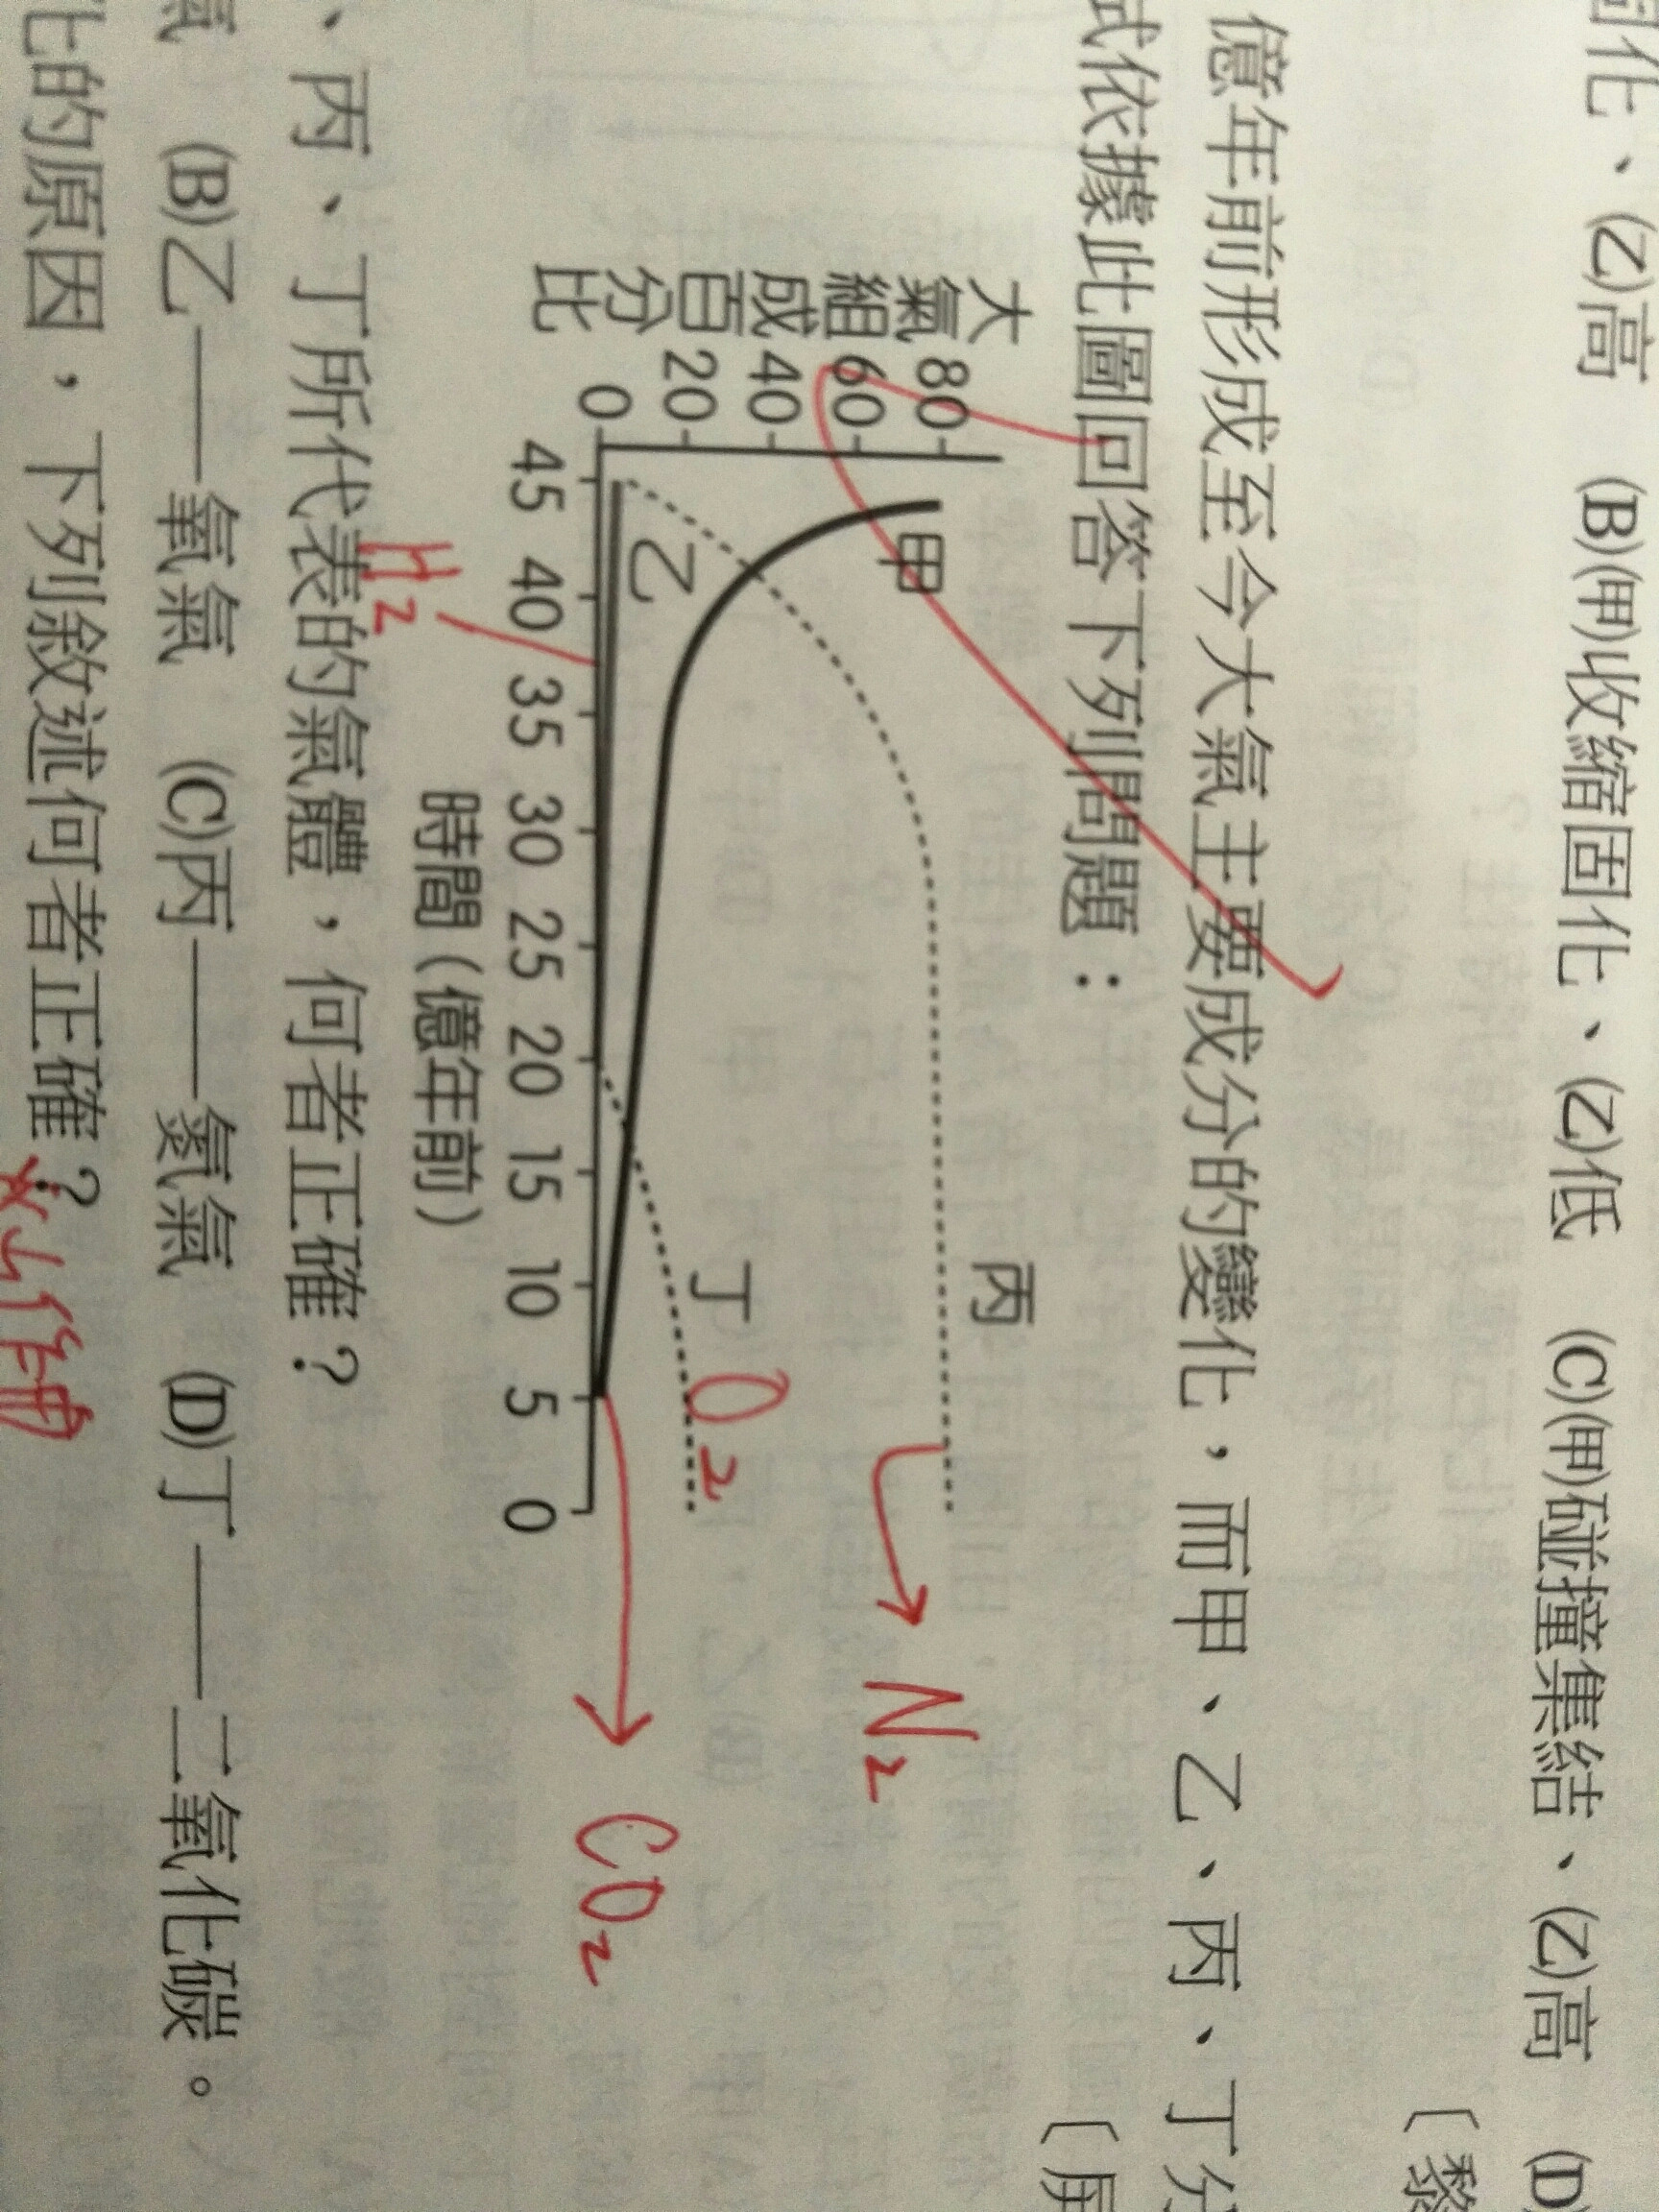 固化、(乙)高　(B)(甲)收縮固化、(乙)低　(C)(甲)碰撞集結、(乙)高　(D)
〔
億年前形成至今大氣主要成分的變化，而甲、乙、丙、丁分
試依據此圖回答下列問題：
〔屏
大氣組成百分比
80
60
40
20
0
甲
乙
丙
丁
45 40 35 30 25 20 15 10 5 0
時間（億年前）
H2
O2
N2
CO2
、丙、丁所代表的氣體，何者正確？
氣　(B)乙——氧氣　(C)丙——氮氣　(D)丁——二氧化碳。
化的原因，下列敘述何者正確？